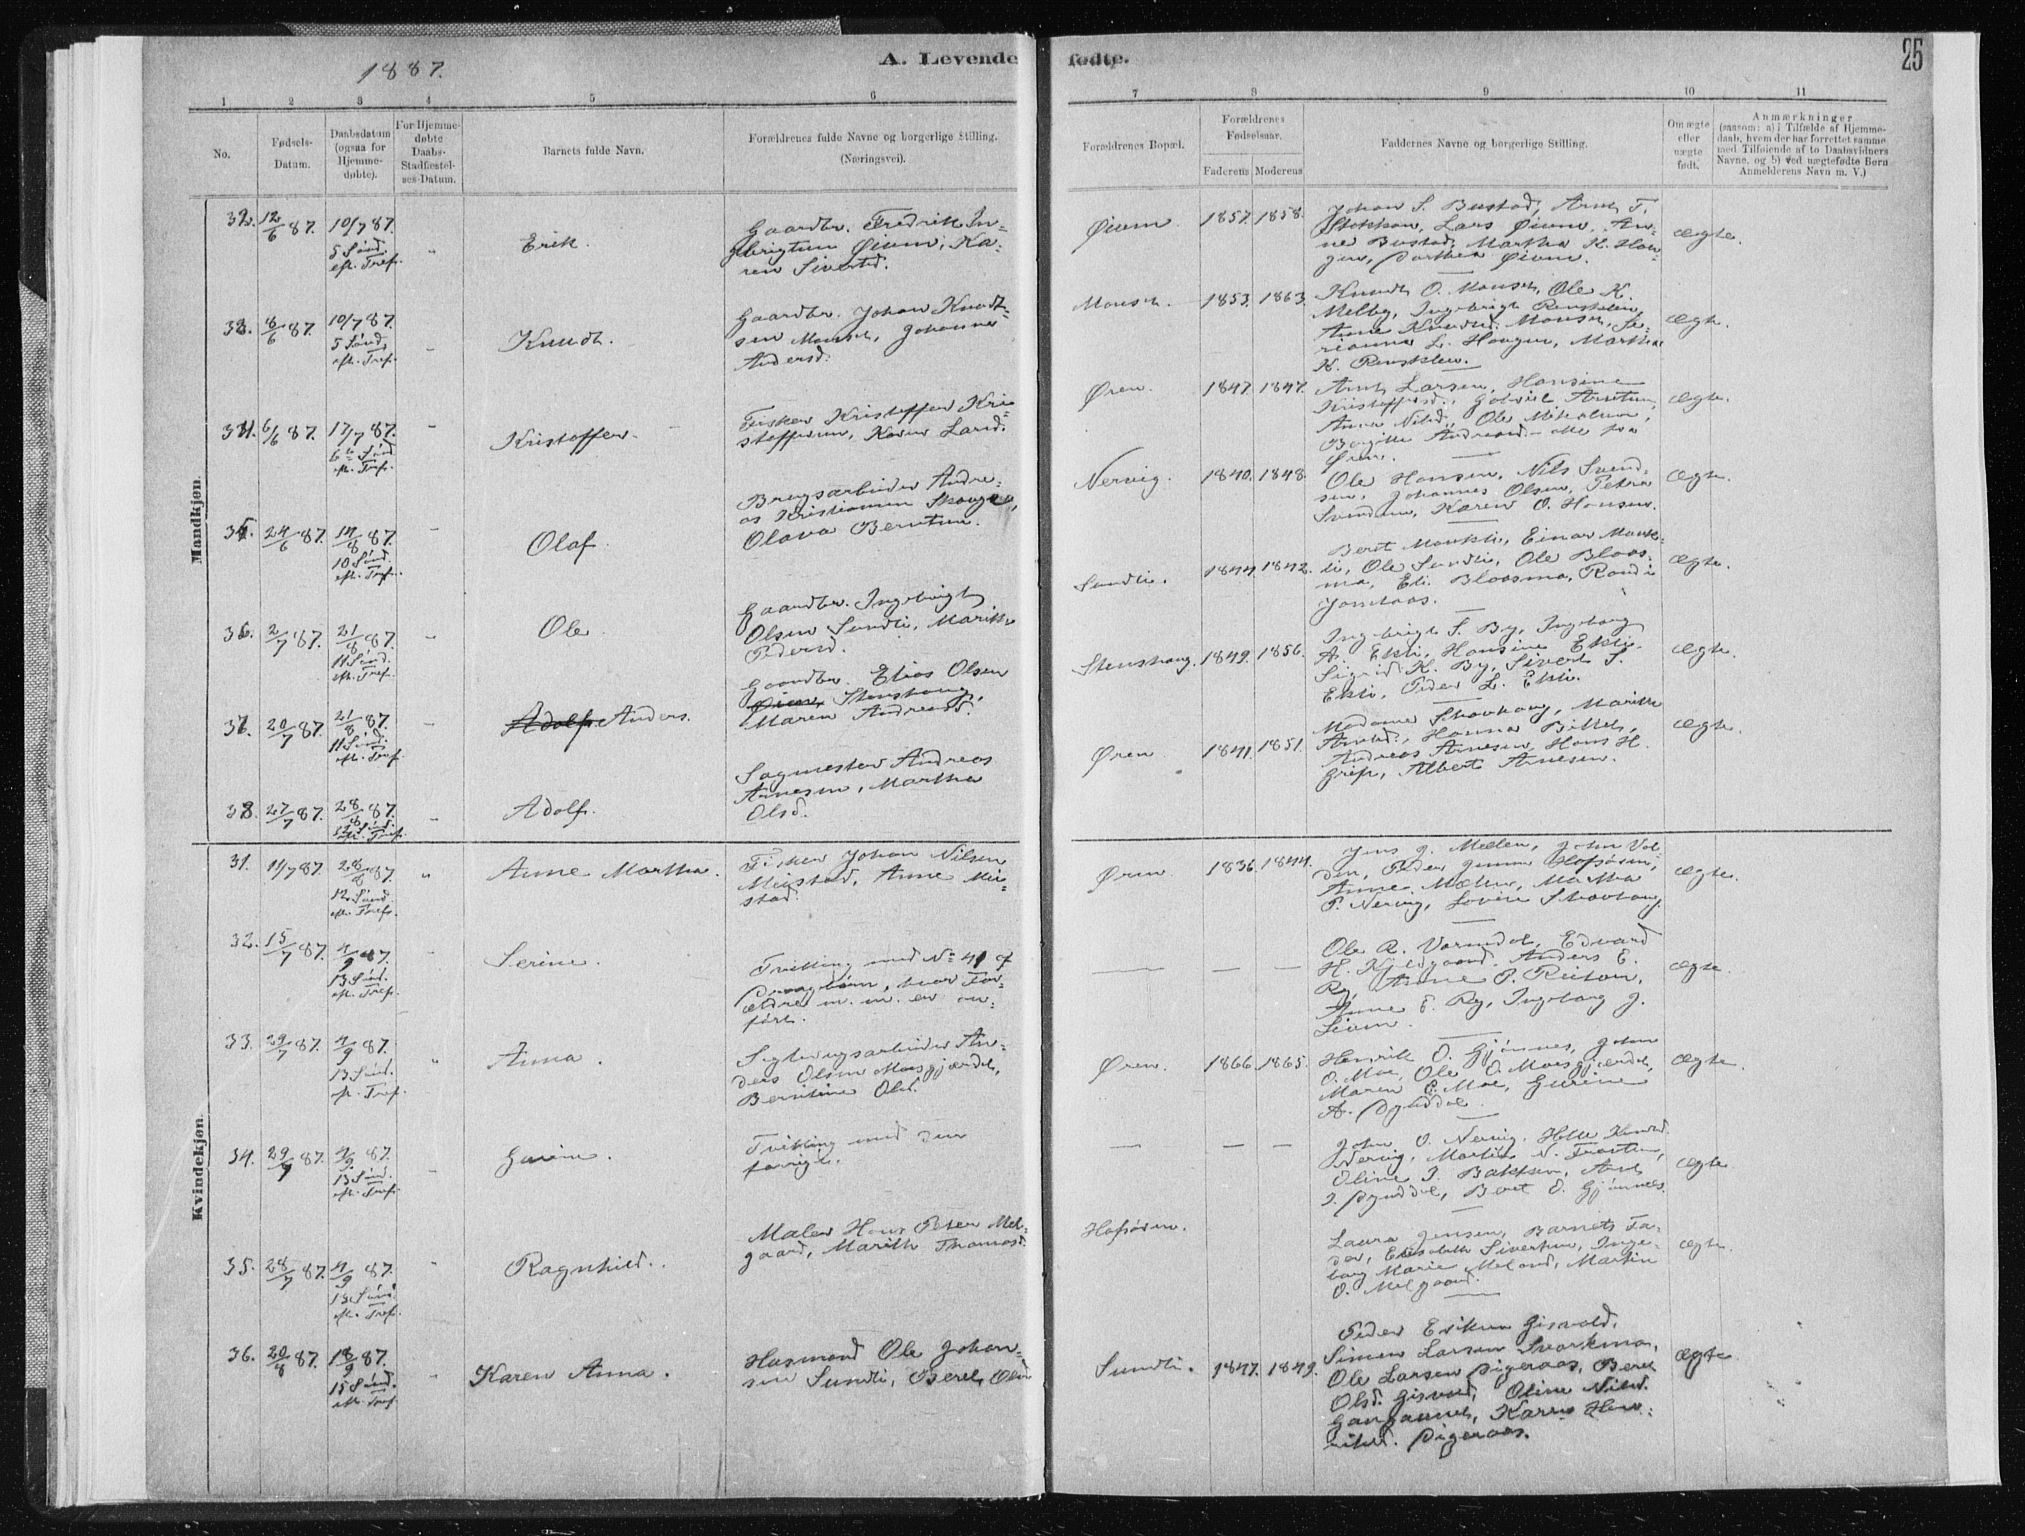 1887.
A. Levende
fødte.
25
1 2 3 4 5 6 7 8 9 10 11
No.
Fødsels-
Datum.
Daabsdatum
(ogsaa for
Hjemme-
døbte).
For Hjemme-
døbte
Daabs-
Stadfæstel-
ses-Datum.
Barnets fulde Navn.
Forældrenes fulde Navne og borgerlige Stilling.
(Næringsvei).
Forældrenes Bopæl.
Forældrenes
Fødselsaar.
Faderens Moderens
Faddernes Navne og borgerlige Stilling.
Om ægte
eller
uægte
født.
Anmærkninger
(saasom: a) i Tilfælde af Hjemme-
daab, hvem der har forrettet samme
med Tilføiende af to Daabsvidners
Navne, og b) ved uægtefødte Børn
Anmelderens Navn m. V.)
Mandkjøn.
32. 12/6 87. 10/7 87.
5 Sønd.
eft. Tref.
Erik.
Gaardbr. Fredrik In-
gebrigtsen Øium, Ka-
ren Sivertsd.
Øium 1857. 1858.
Johan S. Bustad, Arnt T.
Stokkan, Lars Øium, An-
ne Bustad, Martha K. Hau-
gen, Dorthea Øium.
Ægte.
33. 8/6 87. 10/7 87.
5 Sønd.
eft. Tref.
Knudt.
Gaardbr. Johan Knudt-
sen Monset, Johanna
Andersd.
Monset. 1853. 1863.
Knudt O. Monset, Ole K.
Melby, Ingebrigt Renskleiv,
Anne Knudtsd. Monset,
L. Haugen, Martha
K. Renskleiv.
Ægte.
34. 6/6 87. 17/7 87.
6te Sønd
eft. Tref.
Kristoffer
Fisker Kristoffer Kri-
stoffersen, Karen Larsd.
Øren. 1847. 1847.
Arnt Larsen, Hansine
Kristoffersd., Gabriel Arntsen,
Anna Nilsd., Ole Mikalsen,
Bergitte Andreasd. alle fra
Øren.
Ægte.
35. 24/6 87. 14/8 87.
10 Sønd.
eft. Tref.
Olaf.
Brugsarbeider Andre-
as Kristiansen Skauge,
Olava Berntsen.
Nervig. 1840. 1848.
Ole Hansen, Nils Svend-
sen, Johannes Olsen, Petra
Svendsen, Karen O. Hansen.
Ægte.
36. 2/7 87. 21/8 87.
11 Sønd.
eft. Tref.
Ole
Gaardbr. Ingebrigt
Olsen Sundli, Marith
Pedersd.
Sundli. 1844. 1842.
Beret Monkli, Einar Monk-
li, Ole Sundli, Ole Blaas-
mo, Eli Blaasmo, Randi
Ægte.
37. 20/7 87. 21/8 87.
11 Sønd.
eft. Tref.
Adolf. Anders.
Gaardbr. Elias Olsen
Øien, Stenshaug,
Maren Andreasd.
Stenshaug. 1849. 1856.
Ingebrigt S. By, Ingeborg
A. Ekli, Hansine Ekli,
Sigrid K. By, Sivert S.
Ekli, Peder L. Ekli.
Ægte.
38. 27/7 87. 28/8 87.
12 Sønd.
eft. Tref.
Adolf.
Sagmester Andreas
Arnesen, Martha
Olsd.
Øren 1841. 1851.
Madame Skovhaug, Marith
Arntsd., Hanna
Andreas Arnesen, Hans H.
Grip, Albert Arnesen.
Ægte.
Kvindekjøn.
31. 14/7 87. 28/8 87.
12 Sønd.
eft. Tref.
Anne Martha.
Fisker Johan Nilsen
Miestad, Anne Mie-
stad.
Øren 1836. 1844.
Jens J. Mælen, John Vol-
den, Peder Hofsøren,
Anne Mælen, Martha
P. Nervig, Lovise Skovhaug.
Ægte.
32. 15/7 87. 4/9 87.
13 Sønd.
eft. Tref.
Serine.
Tvilling med No 41 af
Drengbørn, hvor For-
ældre m. m. er an-
ført.
Ole R. Vormdal, Edvard
H. Kjeldgaard, Anders E.
Ry, Anne P. Reitan,
Anne E. Ry, Ingeborg J.
Leium.
Ægte.
33. 29/7 87. 4/9 87.
13 Sønd.
eft. Tref.
Anna.
Sagbrugsarbeider An-
ders Olsen Moesgjærdet,
Berntine Olsd.
Øren. 1866. 1865.
Henrik O. Gjønnes, John
O. Moe, Ole O. Moesgjærdet,
Maren E. Moe, Gurine
A. Dynddal.
Ægte.
34. 29/7 87. 4/9 87.
13 Sønd.
eft. Tref.
Gurine.
Tvilling med den
forrige.
John O. Nervig, Knudsd.
Nervig, Martin N.
Oline I. Bakken, Arnt
I. Dynddal, Beret O. Gjønnes.
Ægte.
35. 28/7 87. 4/9 87.
13 Sønd.
eft. Tref.
Ragnhild.
Maler Hans Peter Mel-
gaard, Marith Thomasd.
Hofsøren.
Laura Jensen, Barnets Fa-
der, Elisabeth Sivertsen, Inge-
borg Marie Meland, Martin
O. Melgaard.
Ægte.
36. 20/8 87. 18/9 87.
15 Sønd.
eft. Tref.
Karen Anna.
Husmand Ole Johan-
sen Sundli, Beret Olsd
Sundli. 1847. 1849.
Peder Eriksen Gisvold,
Simen Larsen Svorkmo,
Ole Larsen Digeraas, Beret
Olsd. Gisvold, Oline Nilsd.
Karen Hen-
riksd. Digeraas.
Ægte